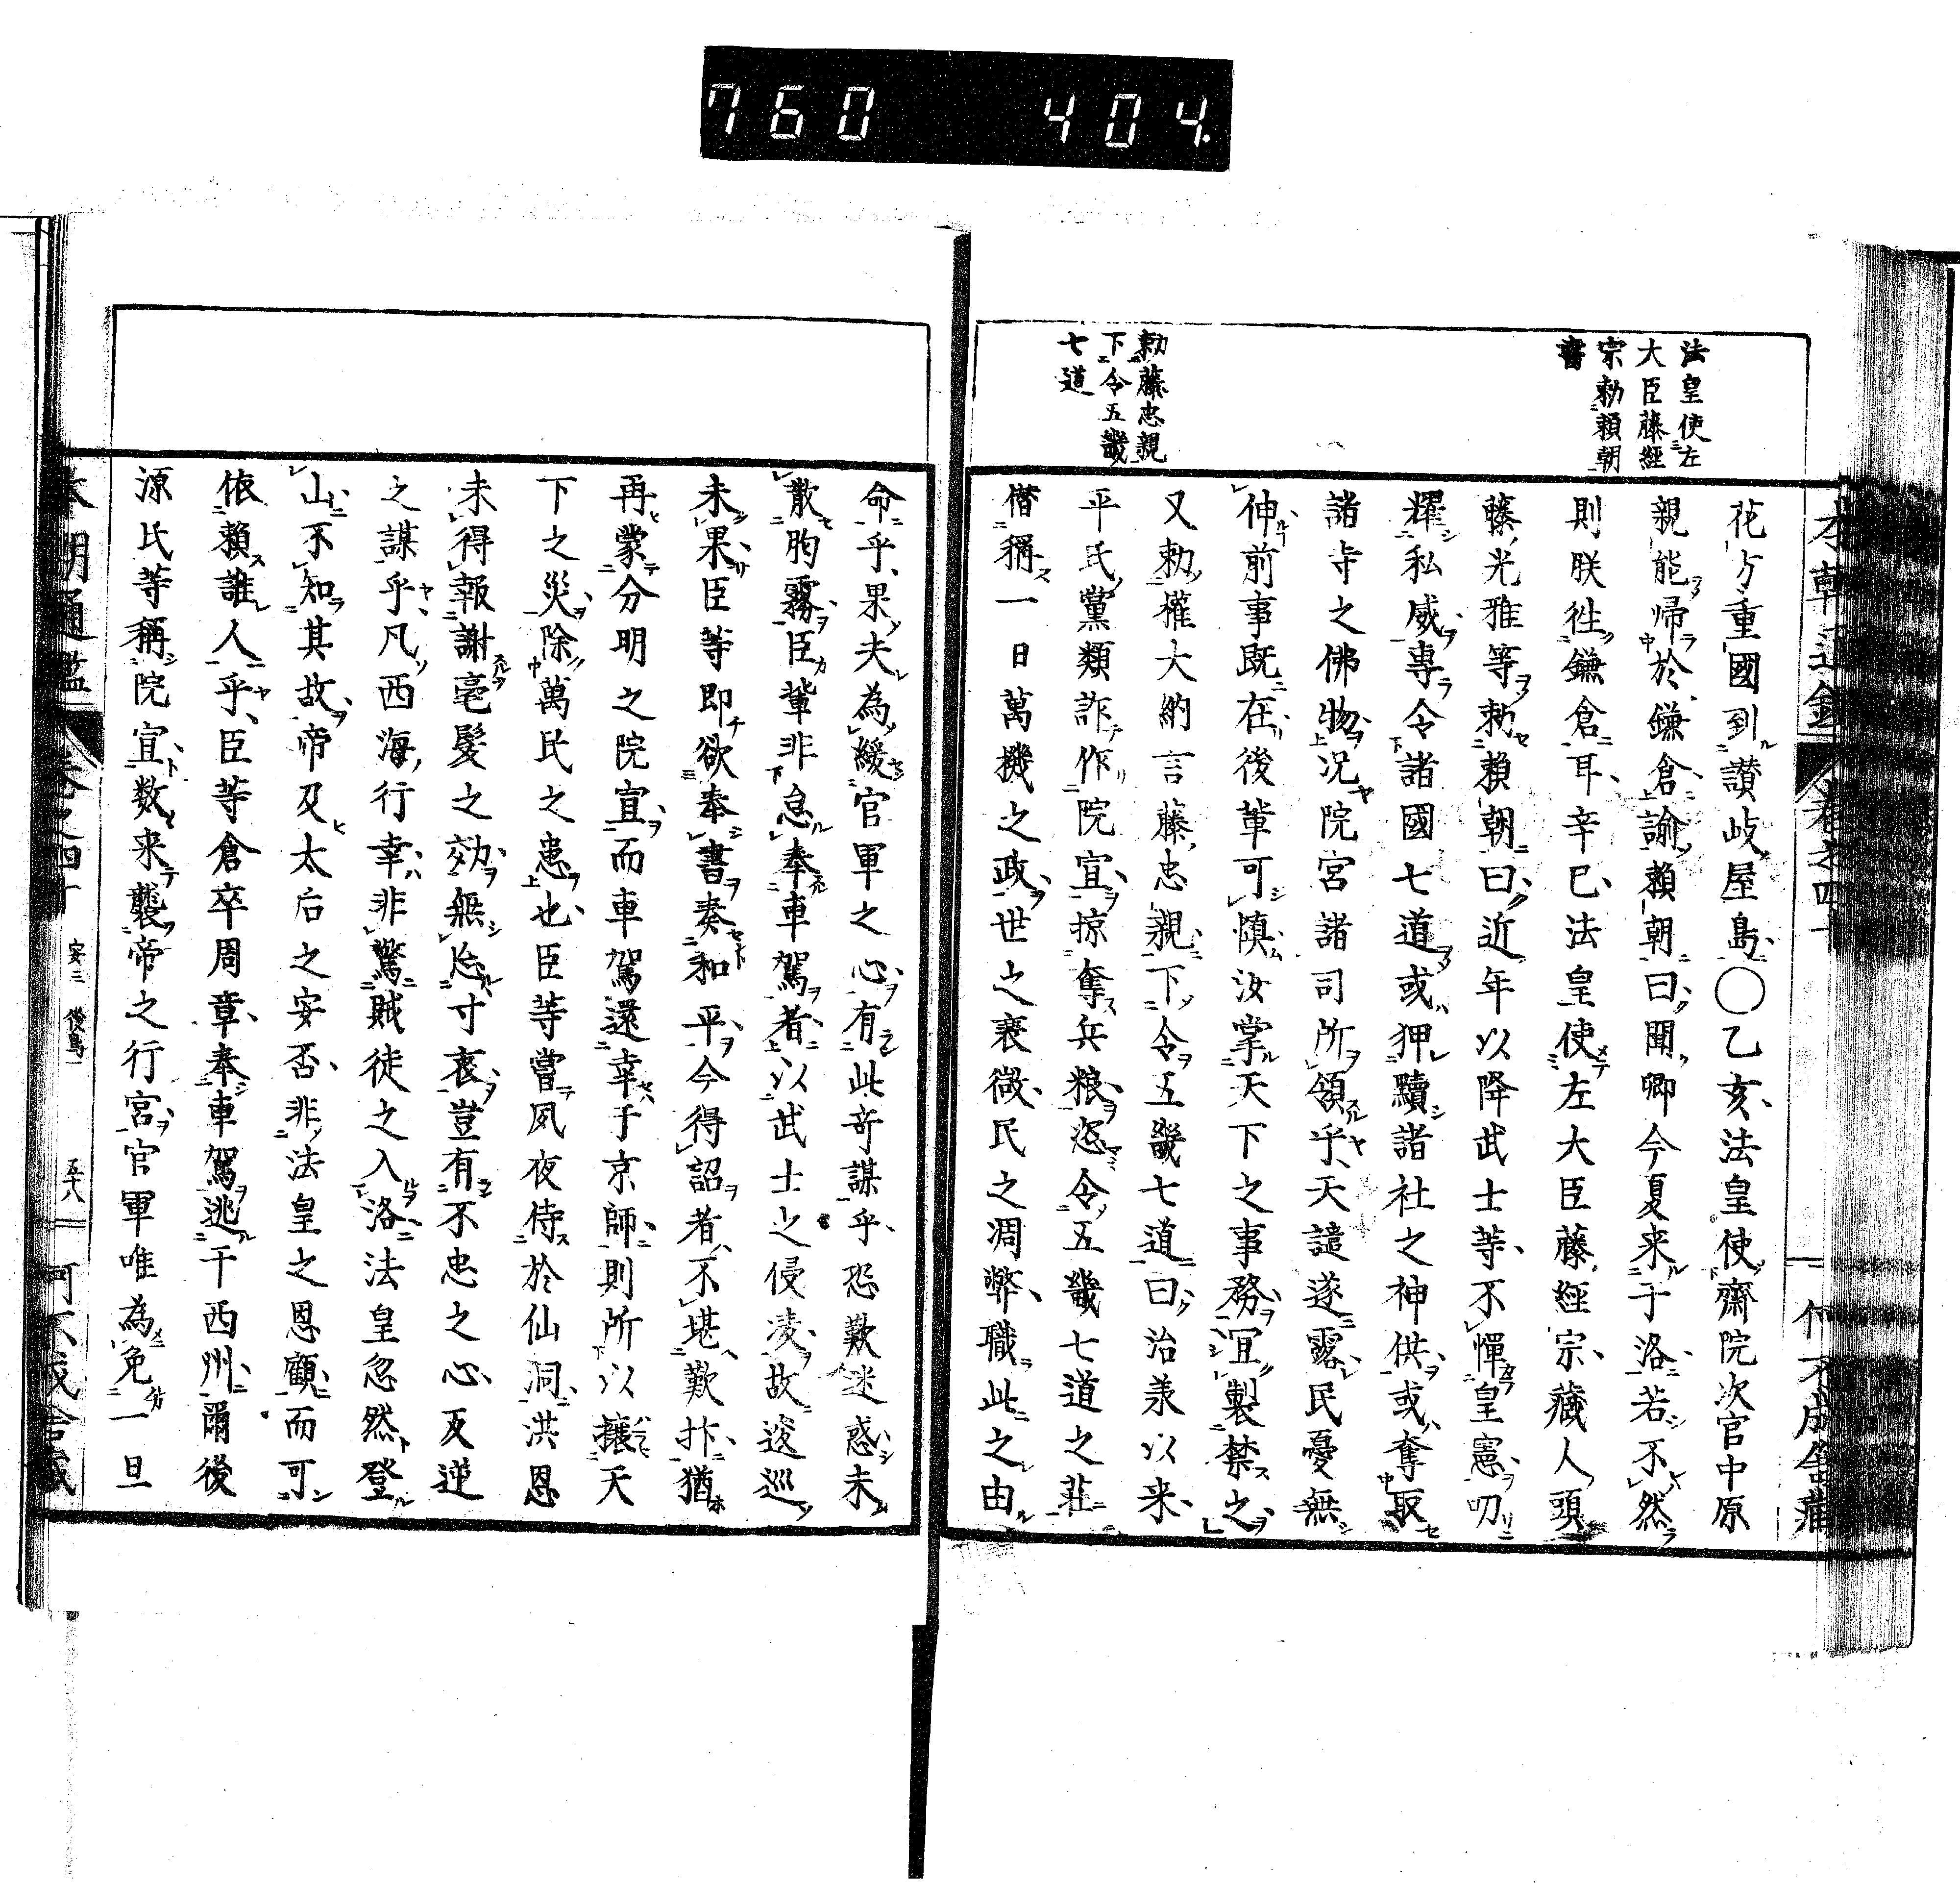 760 404.
法皇使左
大臣藤經
宗勅頼朝
書
勅藤忠親
下令五畿
七道
花方重國到讃岐屋島〇乙亥法皇使齋院次官中原
親能帰於鎌倉諭頼朝曰聞卿今夏来于洛若不然
則朕徃鎌倉耳辛巳法皇使左大臣藤經宗藏人頭
藤光雅等勅頼朝曰近年以降武士等不憚皇憲叨
耀私威専令諸國七道或狎黷諸社之神供或奪取
諸寺之佛物況院宮諸司所領乎天譴遂露民憂無
伸前事既在後輩可慎汝掌天下之事務宜製禁之
又勅權大納言藤忠親下令五畿七道曰治承以来
平氏黨類詐作院宣掠奪兵粮恣令五畿七道之莊
僭稱一日萬機之政世之衰微民之凋弊職此之由
命乎果夫為緩官軍之心有此奇謀乎恐歎迷惑未
散朐霧臣輩非怠奉車駕者以武士之侵凌故逡巡
未果臣等即欲奉書奏和平今得詔者不堪歎抃猶
再蒙分明之院宣而車駕還幸于京師則所以攘天
下之災除萬民之患也臣等嘗夙夜侍於仙洞洪恩
未得報謝毫髮之効無忩寸衷豈有不忠之心及逆
之謀乎凡西海行幸非驚賊徒之入洛法皇忽然登
山不知其故帝及太后之安否非法皇之恩顧而可
依賴誰人乎臣等倉卒周章奉車駕逃于西州爾後
源氏等稱院宣数来襲帝之行宮官軍唯為免一旦
本朝通鑑 卷之四十 安三 後鳥一 五十八